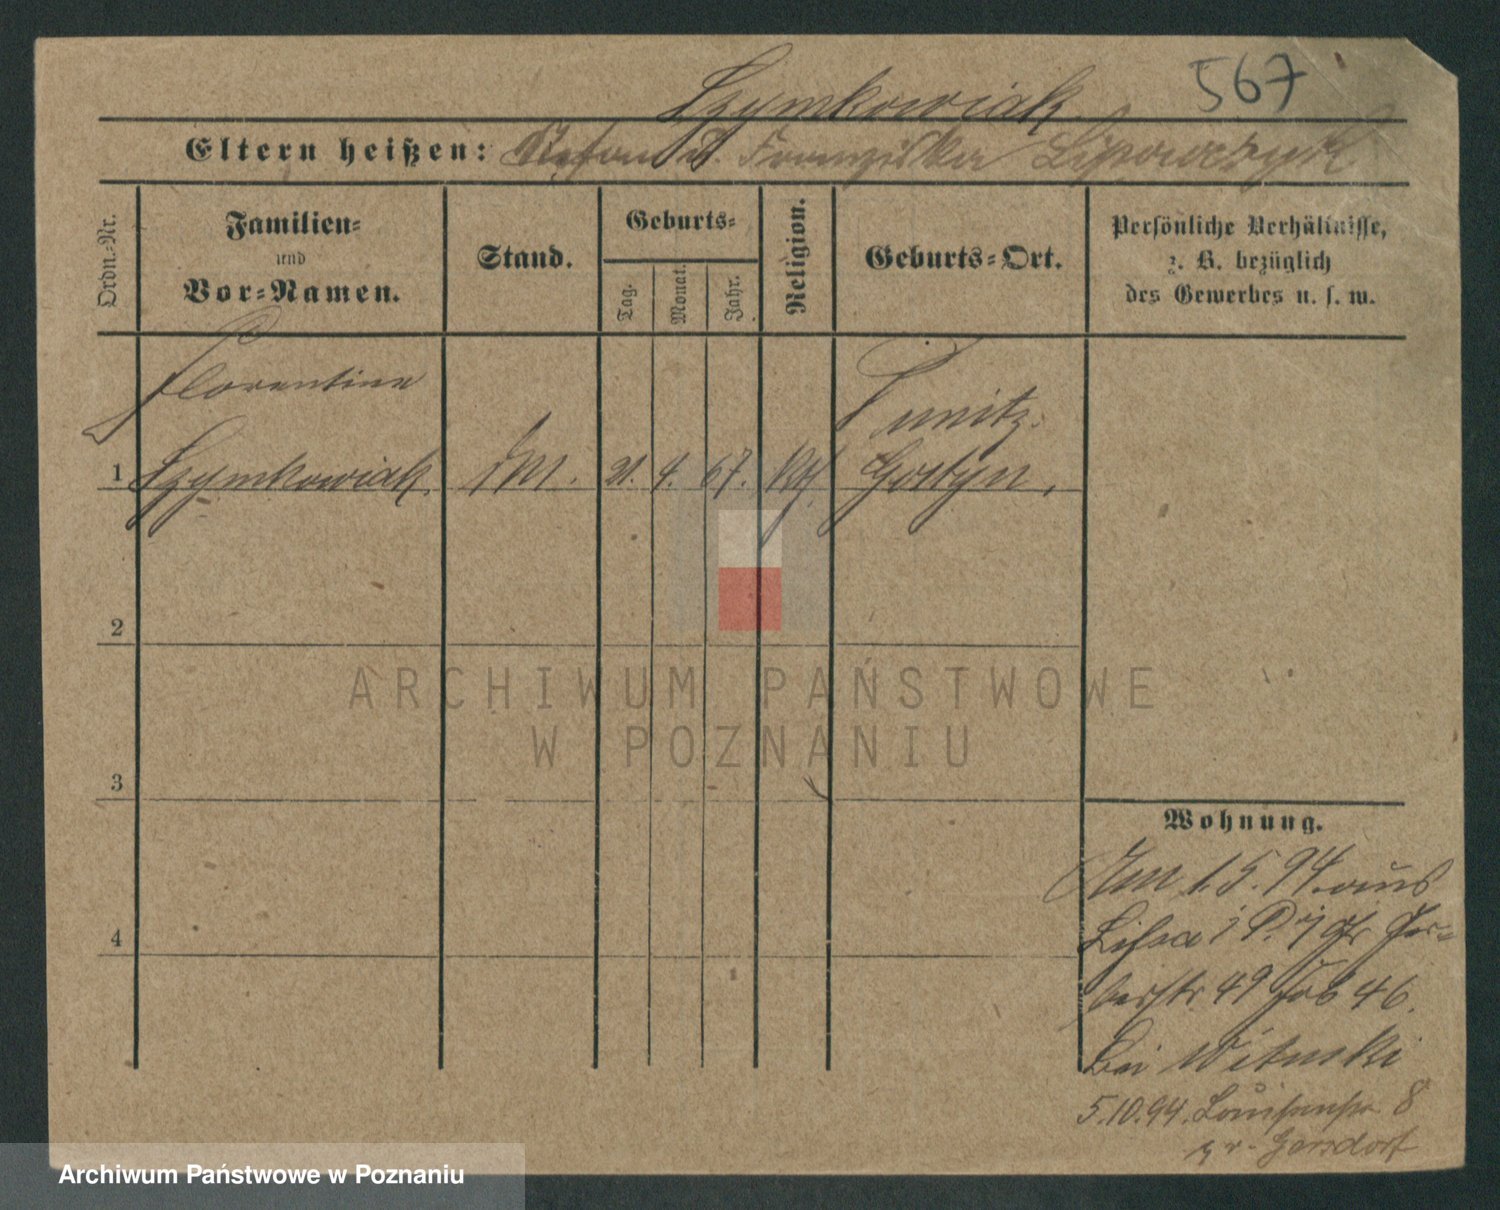 567
Szymkowiak
Eltern heißen: Stefan u. Franziska Lipowczyk
Ordn.-Nr.
Familien-
und
Vor-Namen.
Stand.
Geburts-
Tag.
Monat.
Jahr.
Religion.
Geburts-Ort.
Persönliche Verhältnisse,
z. B. bezüglich
des Gewerbes u. s. w.
Florentine
Punitz.
1 Szymkowiak. 21. 4. 67. Kth. Gostyn.
2
3
4
ARCHIWUM PAŃSTWOWE
W POZNANIU
Wohnung.
Am 1.5.94. aus
Lissa i P. gr Ger-
berstr 49
Bei Witucki
5.10.94. Louisenstr 8
v. Gersdorf
Archiwum Państwowe w Poznaniu